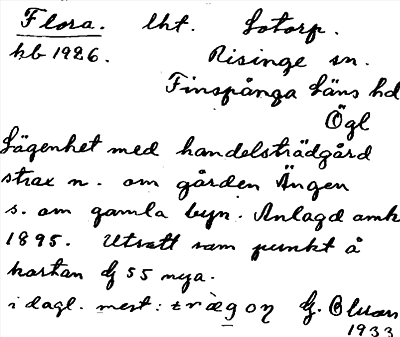 Flora. lht. Lotorp.
kb 1926. Risinge sn.
Finspånga läns hd
Ögl
Lägenhet med handelsträdgård
strax n. om gården Ängen
s. om gamla byn. Anlagd omk
1895. Utsatt som punkt å
kartan Ef 55 nya.
i dagl. mest: trægoɳ G.
1933